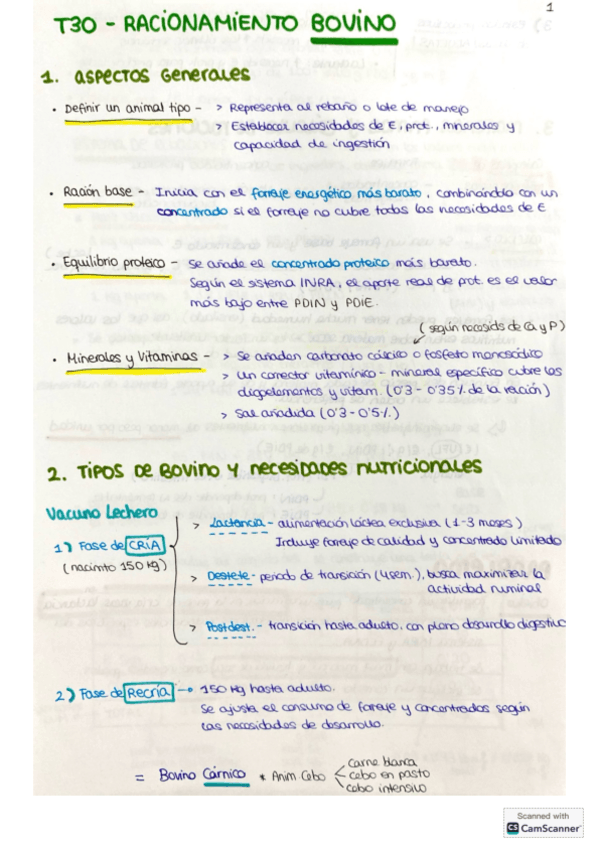 1
T30 - RACIONAMIENTO BOVINO
1. ASPECTOS Generales
• Definir un animal tipo - > Representa al rebaño o lote de manejo
> Establecer necesidades de E, prot., minerales y
capacidad de ingestión
• Ración base - Inicia con el forraje energético más barato, combinándolo con un
concentrado si el forraje no cubre todas las necesidades de E
• Equilibrio proteico - Se añade el concentrado proteico más barato.
Según el sistema INRA, el aporte real de prot. es el valor
más bajo entre PDIN y PDIE.
(según necesids de Ca y P)
• Minerales y Vitaminas - > Se añaden carbonato cálcico o fosfato monosódico
> Un corrector vitamínico - mineral específico cubre los
oligoelementos y vitam. (0'3 - 0'35% de la ración)
> Sal añadida (0'3 - 0'5%)
2. TIPOS DE BOVINO Y necesidades nutricionales
Vacuno Lechero
1) Fase de CRÍA
(nacimto 150 kg)
> Lactancia - alimentación láctea exclusiva (1-3 meses)
Incluye forraje de calidad y concentrado limitado
> Destete - periodo de transición (4 sem.), busca maximizar la
actividad ruminal
> Postdest. - transición hasta adulto, con pleno desarrollo digestivo
2) Fase de Recría → 150 kg hasta adulto.
Se ajusta el consumo de forraje y concentrados según
las necesidades de desarrollo.
= Bovino Cárnico * Anim Cebo < Carne blanca
cebo en pasto
cebo intensivo
Scanned with
CS CamScanner